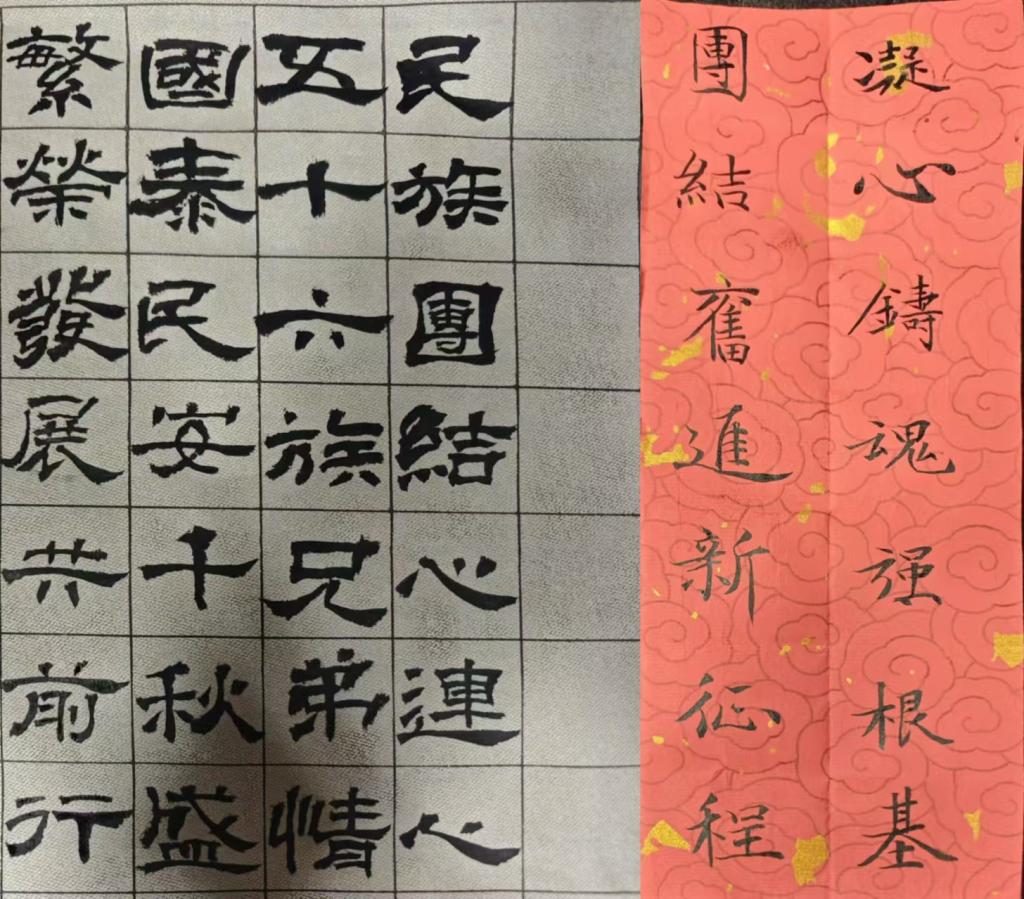 民族團結心連心
五十六族兄弟情
國泰民安千秋盛
繁榮發展共前行
凝心鑄魂强根基
團結奮進新征程